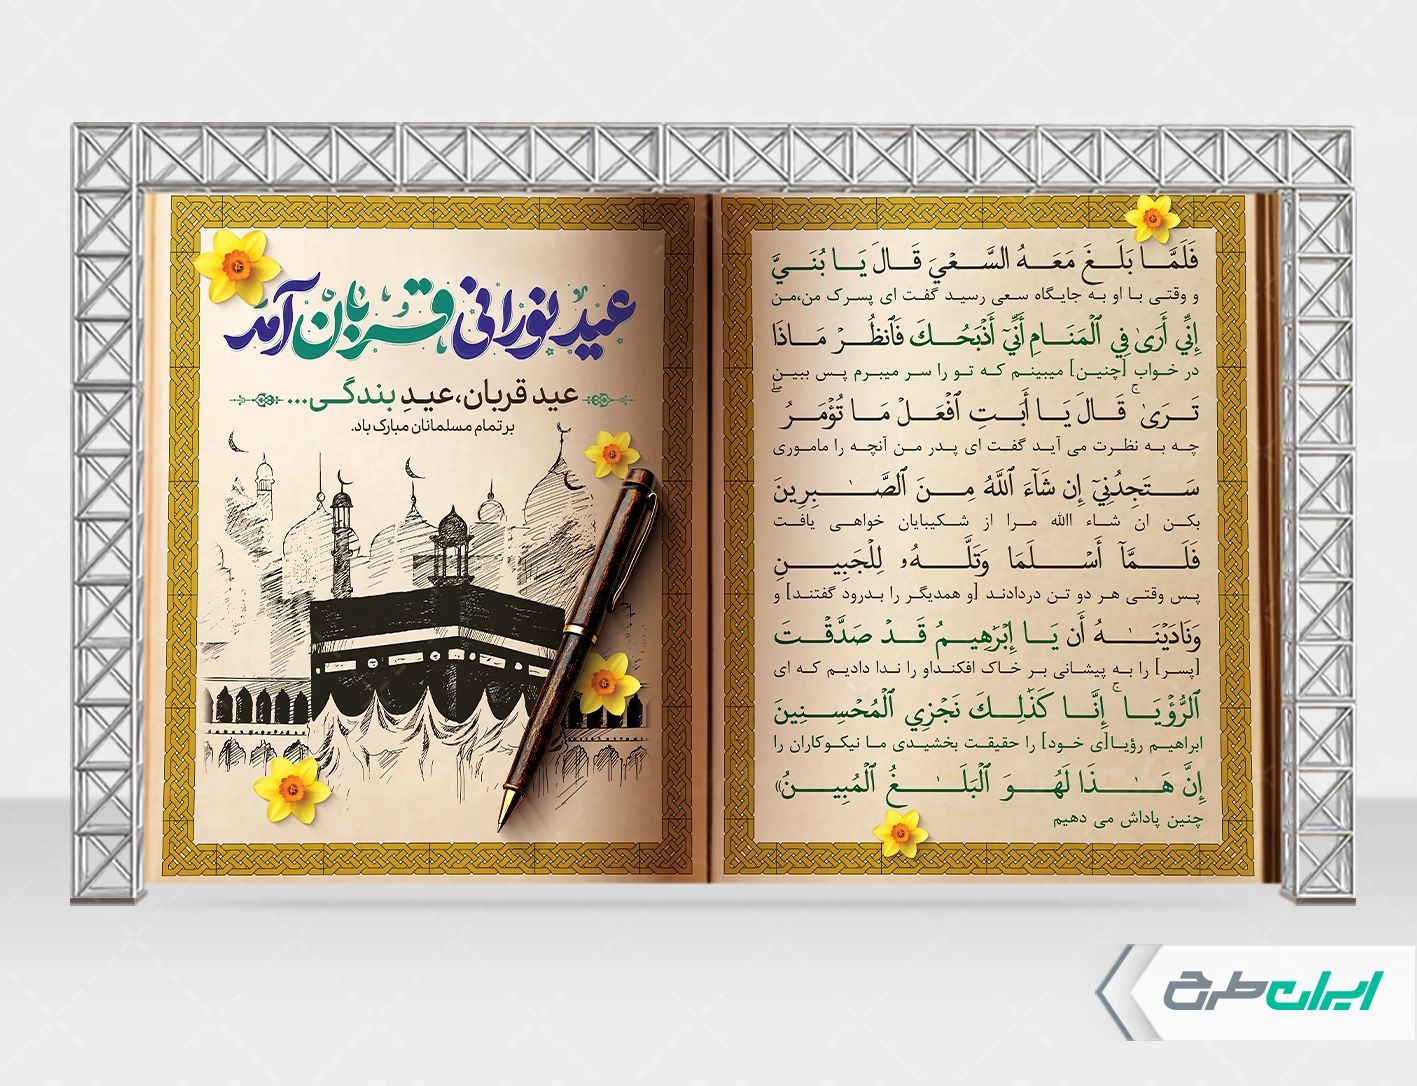 عید نورانی قربان آمد
عید قربان،عیدِ بندگی...
بر تمام مسلمانان مبارک باد.
فَلَمَّا بَلَغَ مَعَهُ السَّعْيَ قَالَ يَا بُنَيَّ
و وقتی با او به جایگاه سعی رسید گفت ای پسرک من،من
إِنِّي أَرَىٰ فِي ٱلْمَنَامِ أَنِّيٓ أَذْبَحُكَ فَٱنظُرْ مَاذَا
در خواب [چنین] میبینم که تو را سر میبرم پس ببین
تَرَىٰ ۚ قَالَ يَا أَبَتِ ٱفْعَلْ مَا تُؤْمَرُ ۖ
چه به نظرت می آید گفت ای پدر من آنچه را ماموری
سَتَجِدُنِيٓ إِن شَآءَ ٱللَّهُ مِنَ ٱلصَّـٰبِرِينَ
بکن ان شاء االله مرا از شکیبایان خواهی یافت
فَلَمَّآ أَسْلَمَا وَتَلَّهُۥ لِلْجَبِينِ
پس وقتی هر دو تن دردادند [و همدیگر را بدرود گفتند] و
وَنَادَيْنَـٰهُ أَن يَا إِبْرَٰهِيمُ قَدْ صَدَّقْتَ
[پسر] را به پیشانی بر خاک افکنداو را ندا دادیم که ای
ٱلرُّؤْيَا ۚ إِنَّا كَذَٰلِكَ نَجْزِي ٱلْمُحْسِنِينَ
ابراهیم رؤیا[ی خود] را حقیقت بخشیدی ما نیکوکاران را
إِنَّ هَـٰذَا لَهُوَ ٱلْبَلَـٰغُ ٱلْمُبِينُ﴾
چنین پاداش می دهیم
ایران طرح